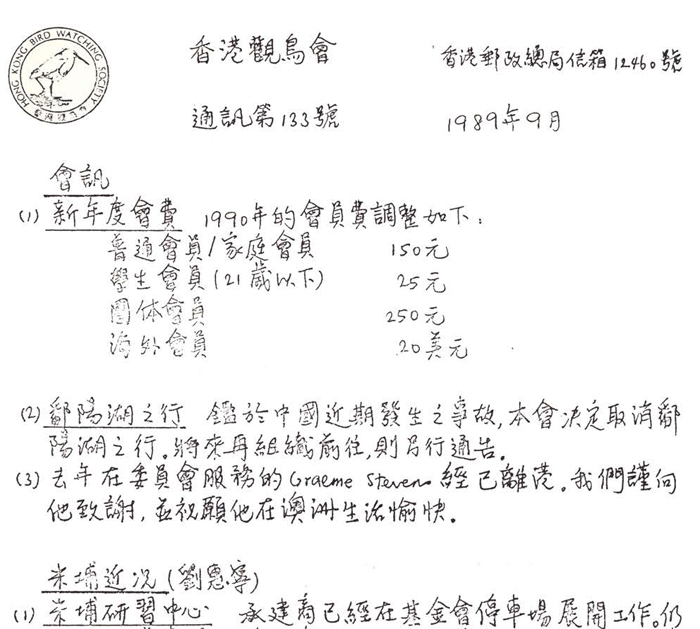 HONG KONG BIRD WATCHING SOCIETY 香港觀鳥會
香港觀鳥會
香港郵政總局信箱12460號
通訊第133號
1989年9月
會訊
(1) 新年度會費 1990年的會員費調整如下:
普通會員/家庭會員 150元
學生會員(21歲以下) 25元
團体會員 250元
海外會員 20美元
(2) 鄱陽湖之行 鑑於中國近期發生之事故,本會決定取消鄱
陽湖之行。將來再組織前往,則另行通告。
(3) 去年在委員會服務的Graeme Stevens 經已離港。我們謹向
他致謝,並祝願他在澳洲生活愉快。
米埔近況(劉惠寧)
(1) 米埔研習中心 承建商已經在基金會停車場展開工作。仍